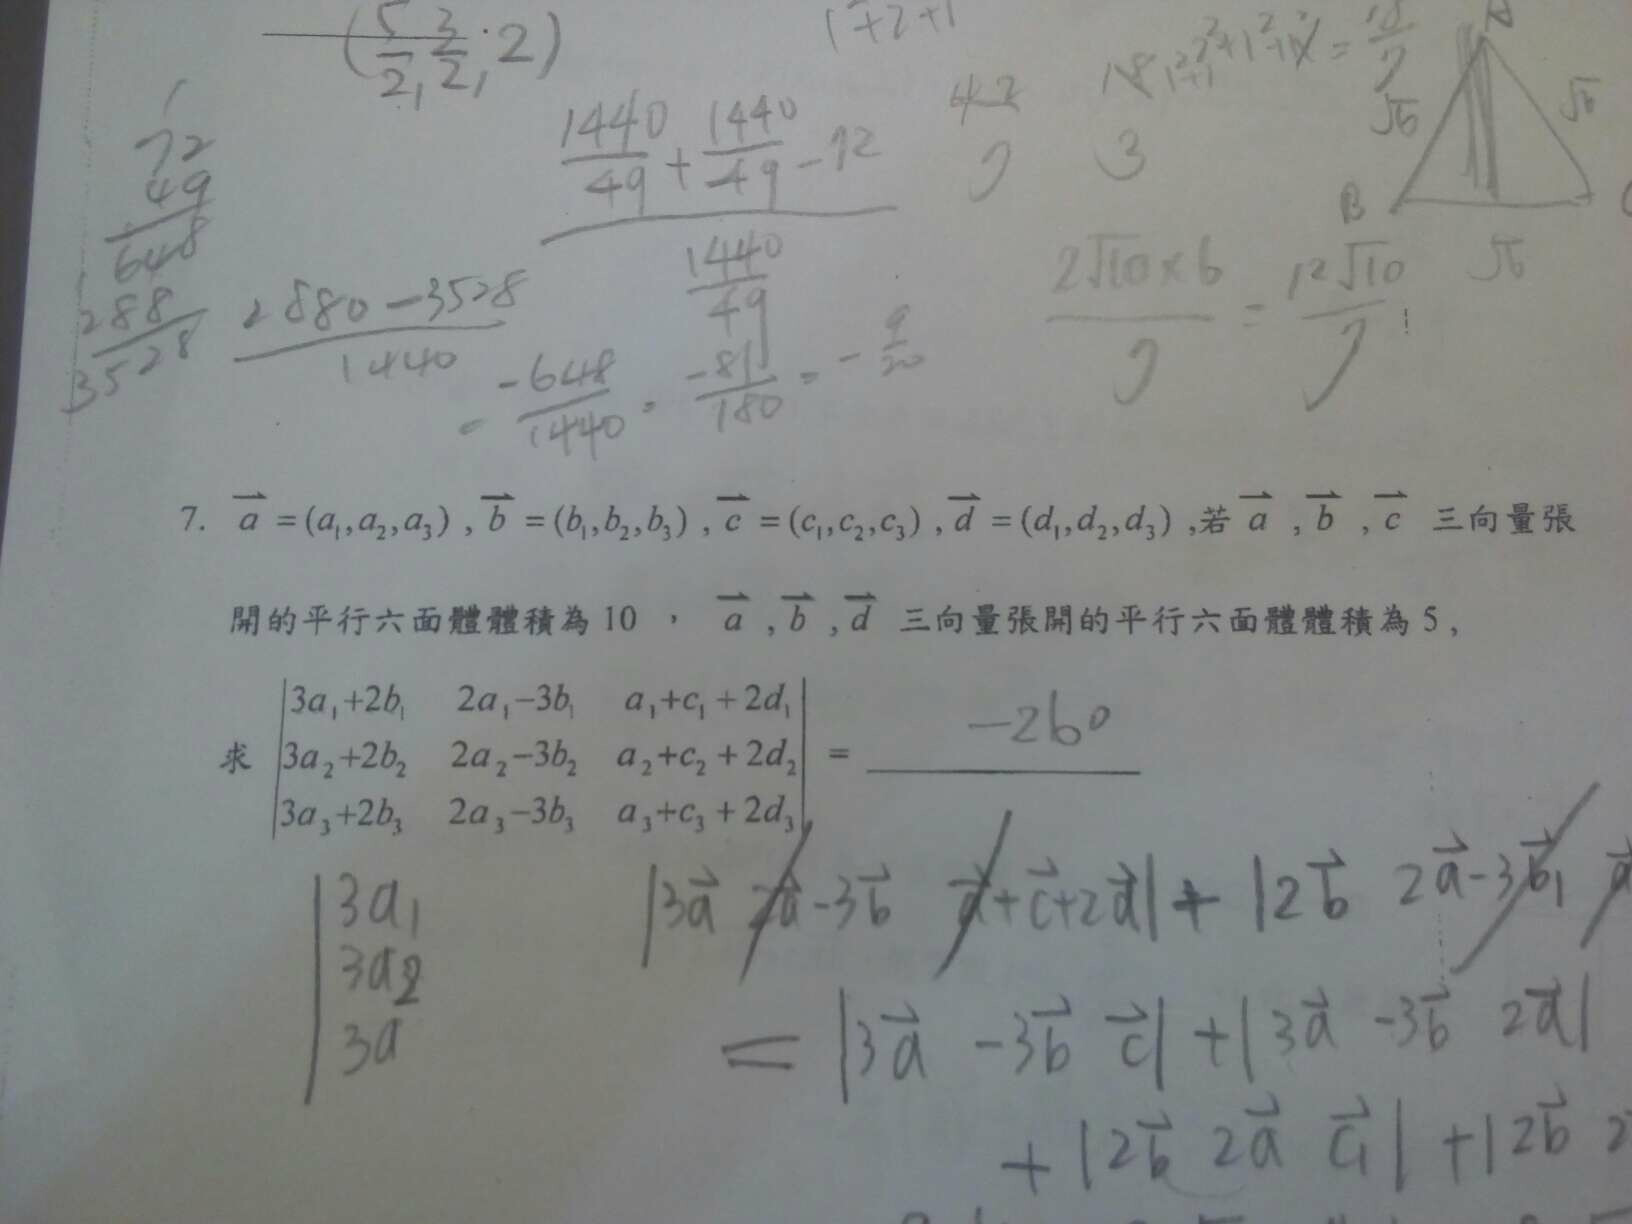 (5/2, 3/2, 2)
1+2+1
72
49
648
288
3528
1440/49 + 1440/49 - 72
1440/49
2880-3528
1440
= -648/1440 = -81/180 = -9/20
42
7
18
3
2√10×6/7 = 12√10/7
√6
√6
B
√6
7. a⃗ =(a₁,a₂,a₃) , b⃗ =(b₁,b₂,b₃) , c⃗ =(c₁,c₂,c₃) , d⃗ =(d₁,d₂,d₃) ,若 a⃗ , b⃗ , c⃗ 三向量張
開的平行六面體體積為 10 , a⃗ , b⃗ , d⃗ 三向量張開的平行六面體體積為 5 ,
|3a₁+2b₁ 2a₁-3b₁ a₁+c₁+2d₁|
求 |3a₂+2b₂ 2a₂-3b₂ a₂+c₂+2d₂| = -260
|3a₃+2b₃ 2a₃-3b₃ a₃+c₃+2d₃|
|3a₁
|3a₂
|3a
|3a⃗ 2a⃗-3b⃗ a⃗+c⃗+2d⃗| + |2b⃗ 2a⃗-3b⃗₁ a⃗
= |3a⃗ -3b⃗ c⃗| + |3a⃗ -3b⃗ 2d⃗|
+ |2b⃗ 2a⃗ c⃗₁| + |2b⃗ 2